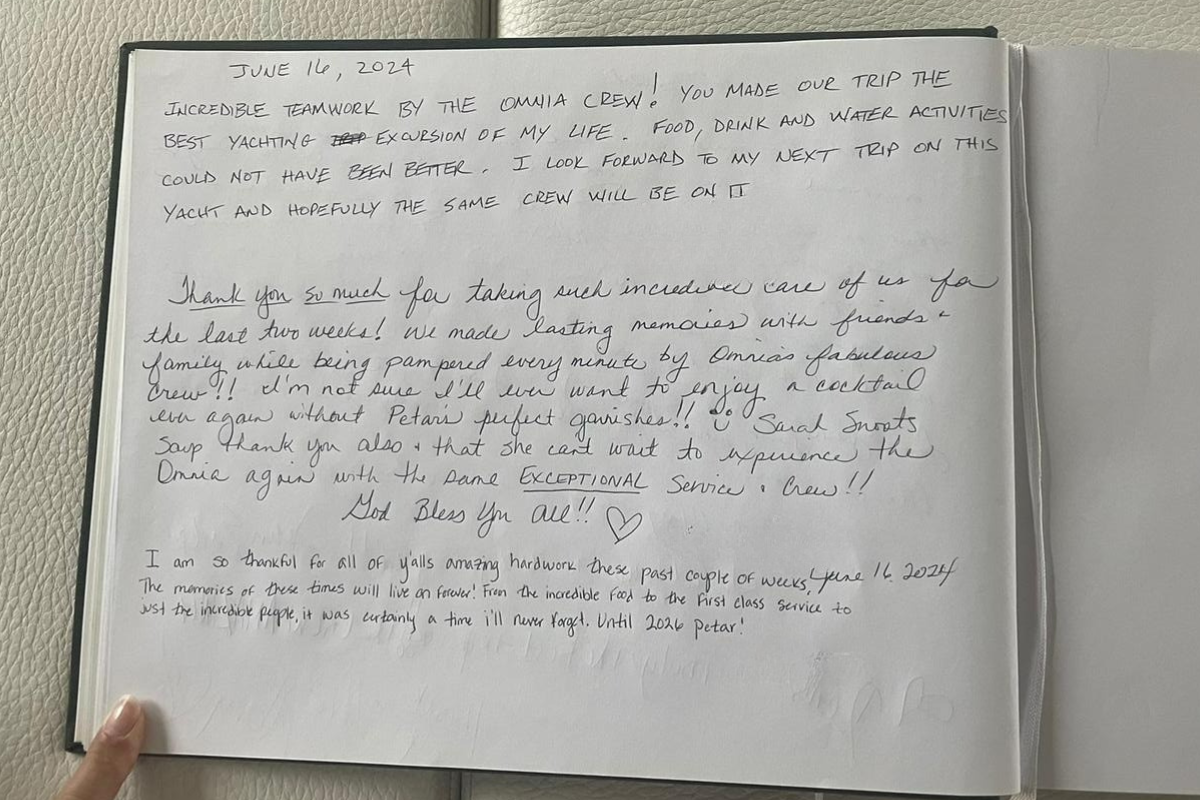 JUNE 16, 2024
INCREDIBLE TEAMWORK BY THE OMNIA CREW! YOU MADE OUR TRIP THE
BEST YACHTING EXCURSION OF MY LIFE. FOOD, DRINK AND WATER ACTIVITIES
COULD NOT HAVE BEEN BETTER. I LOOK FORWARD TO MY NEXT TRIP ON THIS
YACHT AND HOPEFULLY THE SAME CREW WILL BE ON IT
Thank you so much for taking such incredible care of us for
the last two weeks! We made lasting memories with friends +
family while being pampered every minute by Omnia's fabulous
Crew!! I'm not sure I'll ever want to enjoy a cocktail
ever again without Petar's perfect garnishes!! Sarah
Says thank you also + that she can't wait to experience the
Omnia again with the same EXCEPTIONAL Service + Crew!!
God Bless You All!! ♡
June 16, 2024
I am so thankful for all of y'alls amazing hardwork these past couple of weeks!
The memories of these times will live on forever! From the incredible food to the first class service to
just the incredible people, it was certainly a time i'll never forget. Until 2026 Petar!